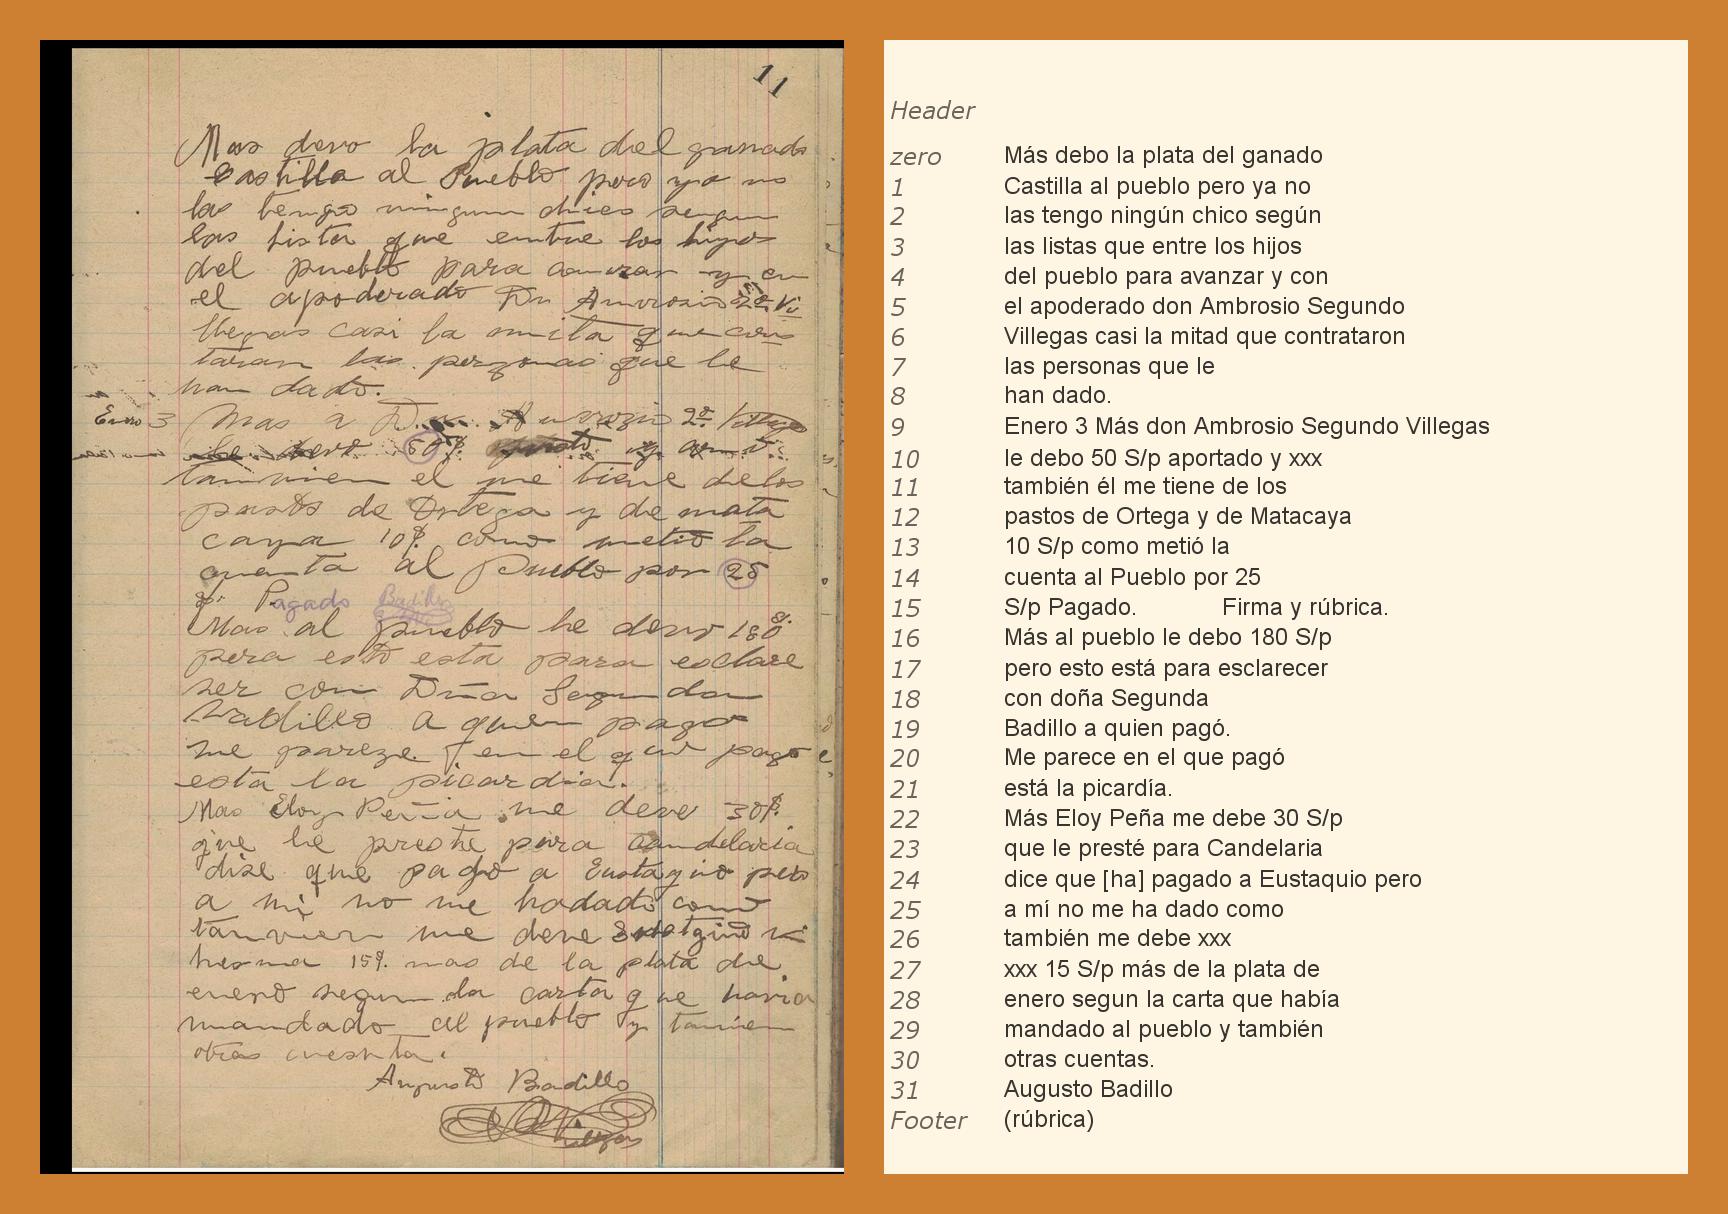 11
Mas devo la plata del ganado
Castilla al Pueblo pero ya no
las tengo ningun chico segun
las lista que entre los hijos
del pueblo para
el apoderado Dn Amvrosio 2º Vi
llegas casi la mita que con
taran las personas que le
han dado.
Enero 3 Mas a Dn. Amvrozio 2º
le devo 50$ y
tamvien el me tiene delos
pasto de Ortega y de mata
caya 10$ como metio la
cuenta al Pueblo por 25
$. Pagado Badillo
Mas al pueblo le devo 180$.
pera esto esta para esclare
ser con Dña Segunda
Vadillo a quien pago
me pareze en el que pago
esta la picardia.
Mas Eloy Peña me deve 30$.
que le preste para candelaria
dise que pago a Eustaquio pero
a mi no me hadado como
tamvien me deve
15$. mas de la plata de
enero segun la carta que havia
mandado al pueblo y tamvien
otras cuenta.
Augusto Badillo
Header
zero Más debo la plata del ganado
1 Castilla al pueblo pero ya no
2 las tengo ningún chico según
3 las listas que entre los hijos
4 del pueblo para avanzar y con
5 el apoderado don Ambrosio Segundo
6 Villegas casi la mitad que contrataron
7 las personas que le
8 han dado.
9 Enero 3 Más don Ambrosio Segundo Villegas
10 le debo 50 S/p aportado y xxx
11 también él me tiene de los
12 pastos de Ortega y de Matacaya
13 10 S/p como metió la
14 cuenta al Pueblo por 25
15 S/p Pagado. Firma y rúbrica.
16 Más al pueblo le debo 180 S/p
17 pero esto está para esclarecer
18 con doña Segunda
19 Badillo a quien pagó.
20 Me parece en el que pagó
21 está la picardía.
22 Más Eloy Peña me debe 30 S/p
23 que le presté para Candelaria
24 dice que [ha] pagado a Eustaquio pero
25 a mí no me ha dado como
26 también me debe xxx
27 xxx 15 S/p más de la plata de
28 enero segun la carta que había
29 mandado al pueblo y también
30 otras cuentas.
31 Augusto Badillo
Footer (rúbrica)